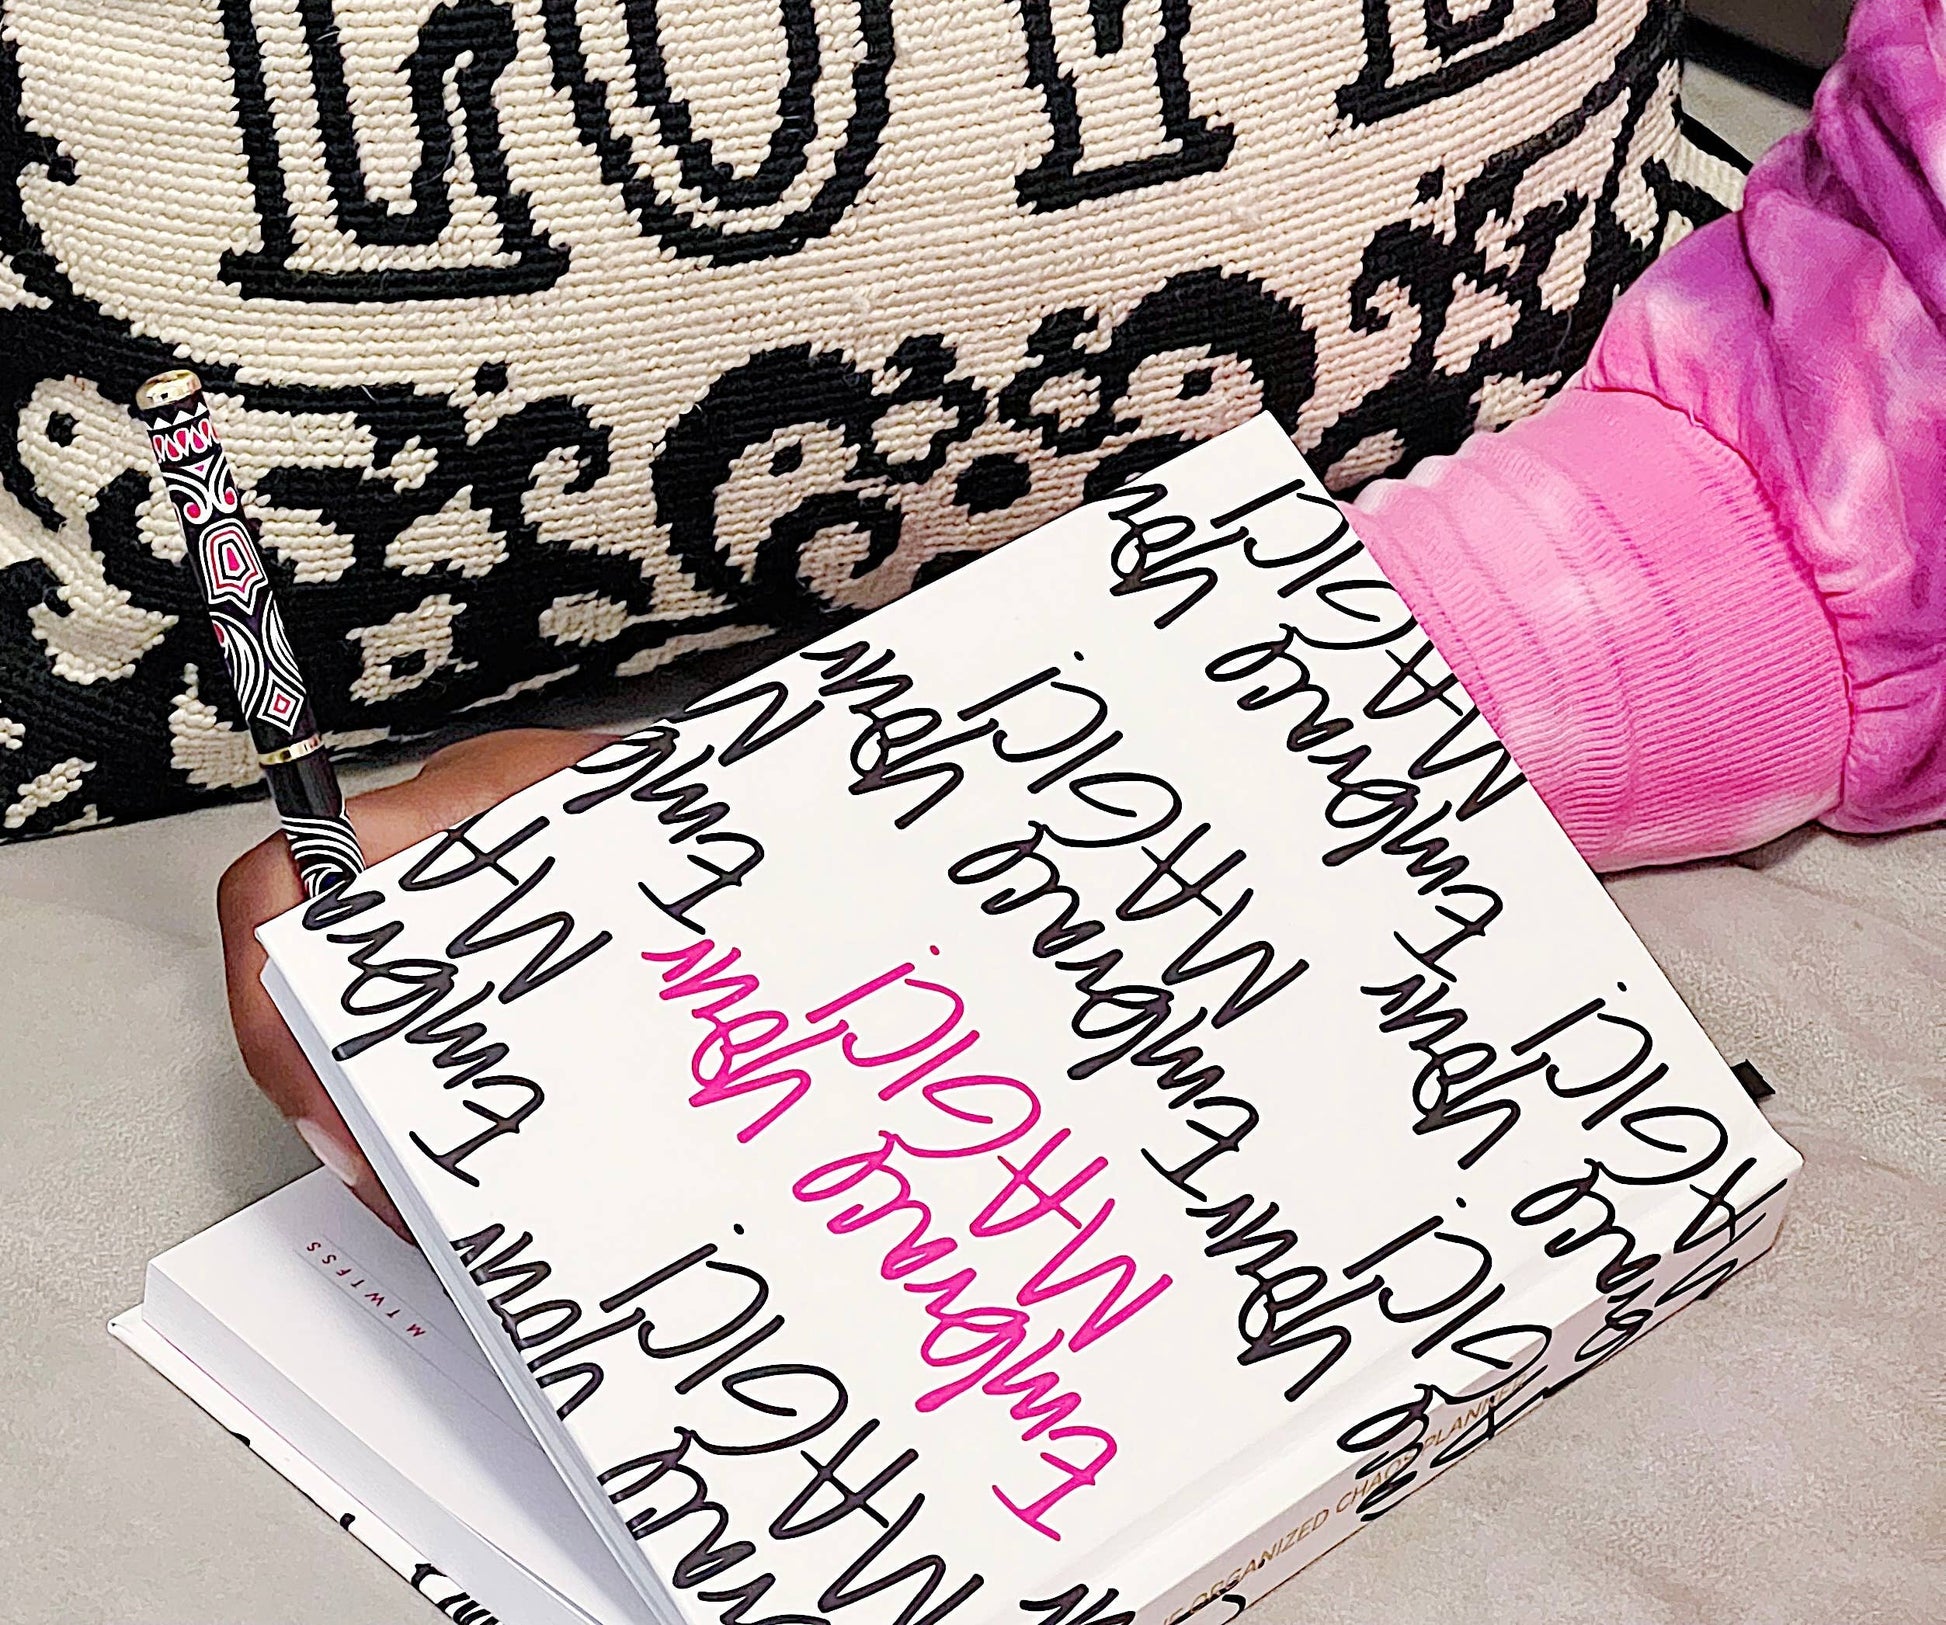 I Embrace your
MAGIC!
I Embrace your
MAGIC!
I Embrace your
MAGIC!
I Embrace
MA
I Em
your
MAGIC!
your
MAGIC!
your
MAGIC!
ORGANIZED CHAOS PLANNER
M T W T F S S